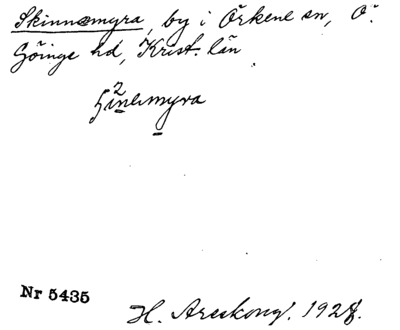 Skinnsmyra, by i Örkene sn, Ö.
Göinge hd, Krist. län
Nr 5435
H. Areskoug. 1928.